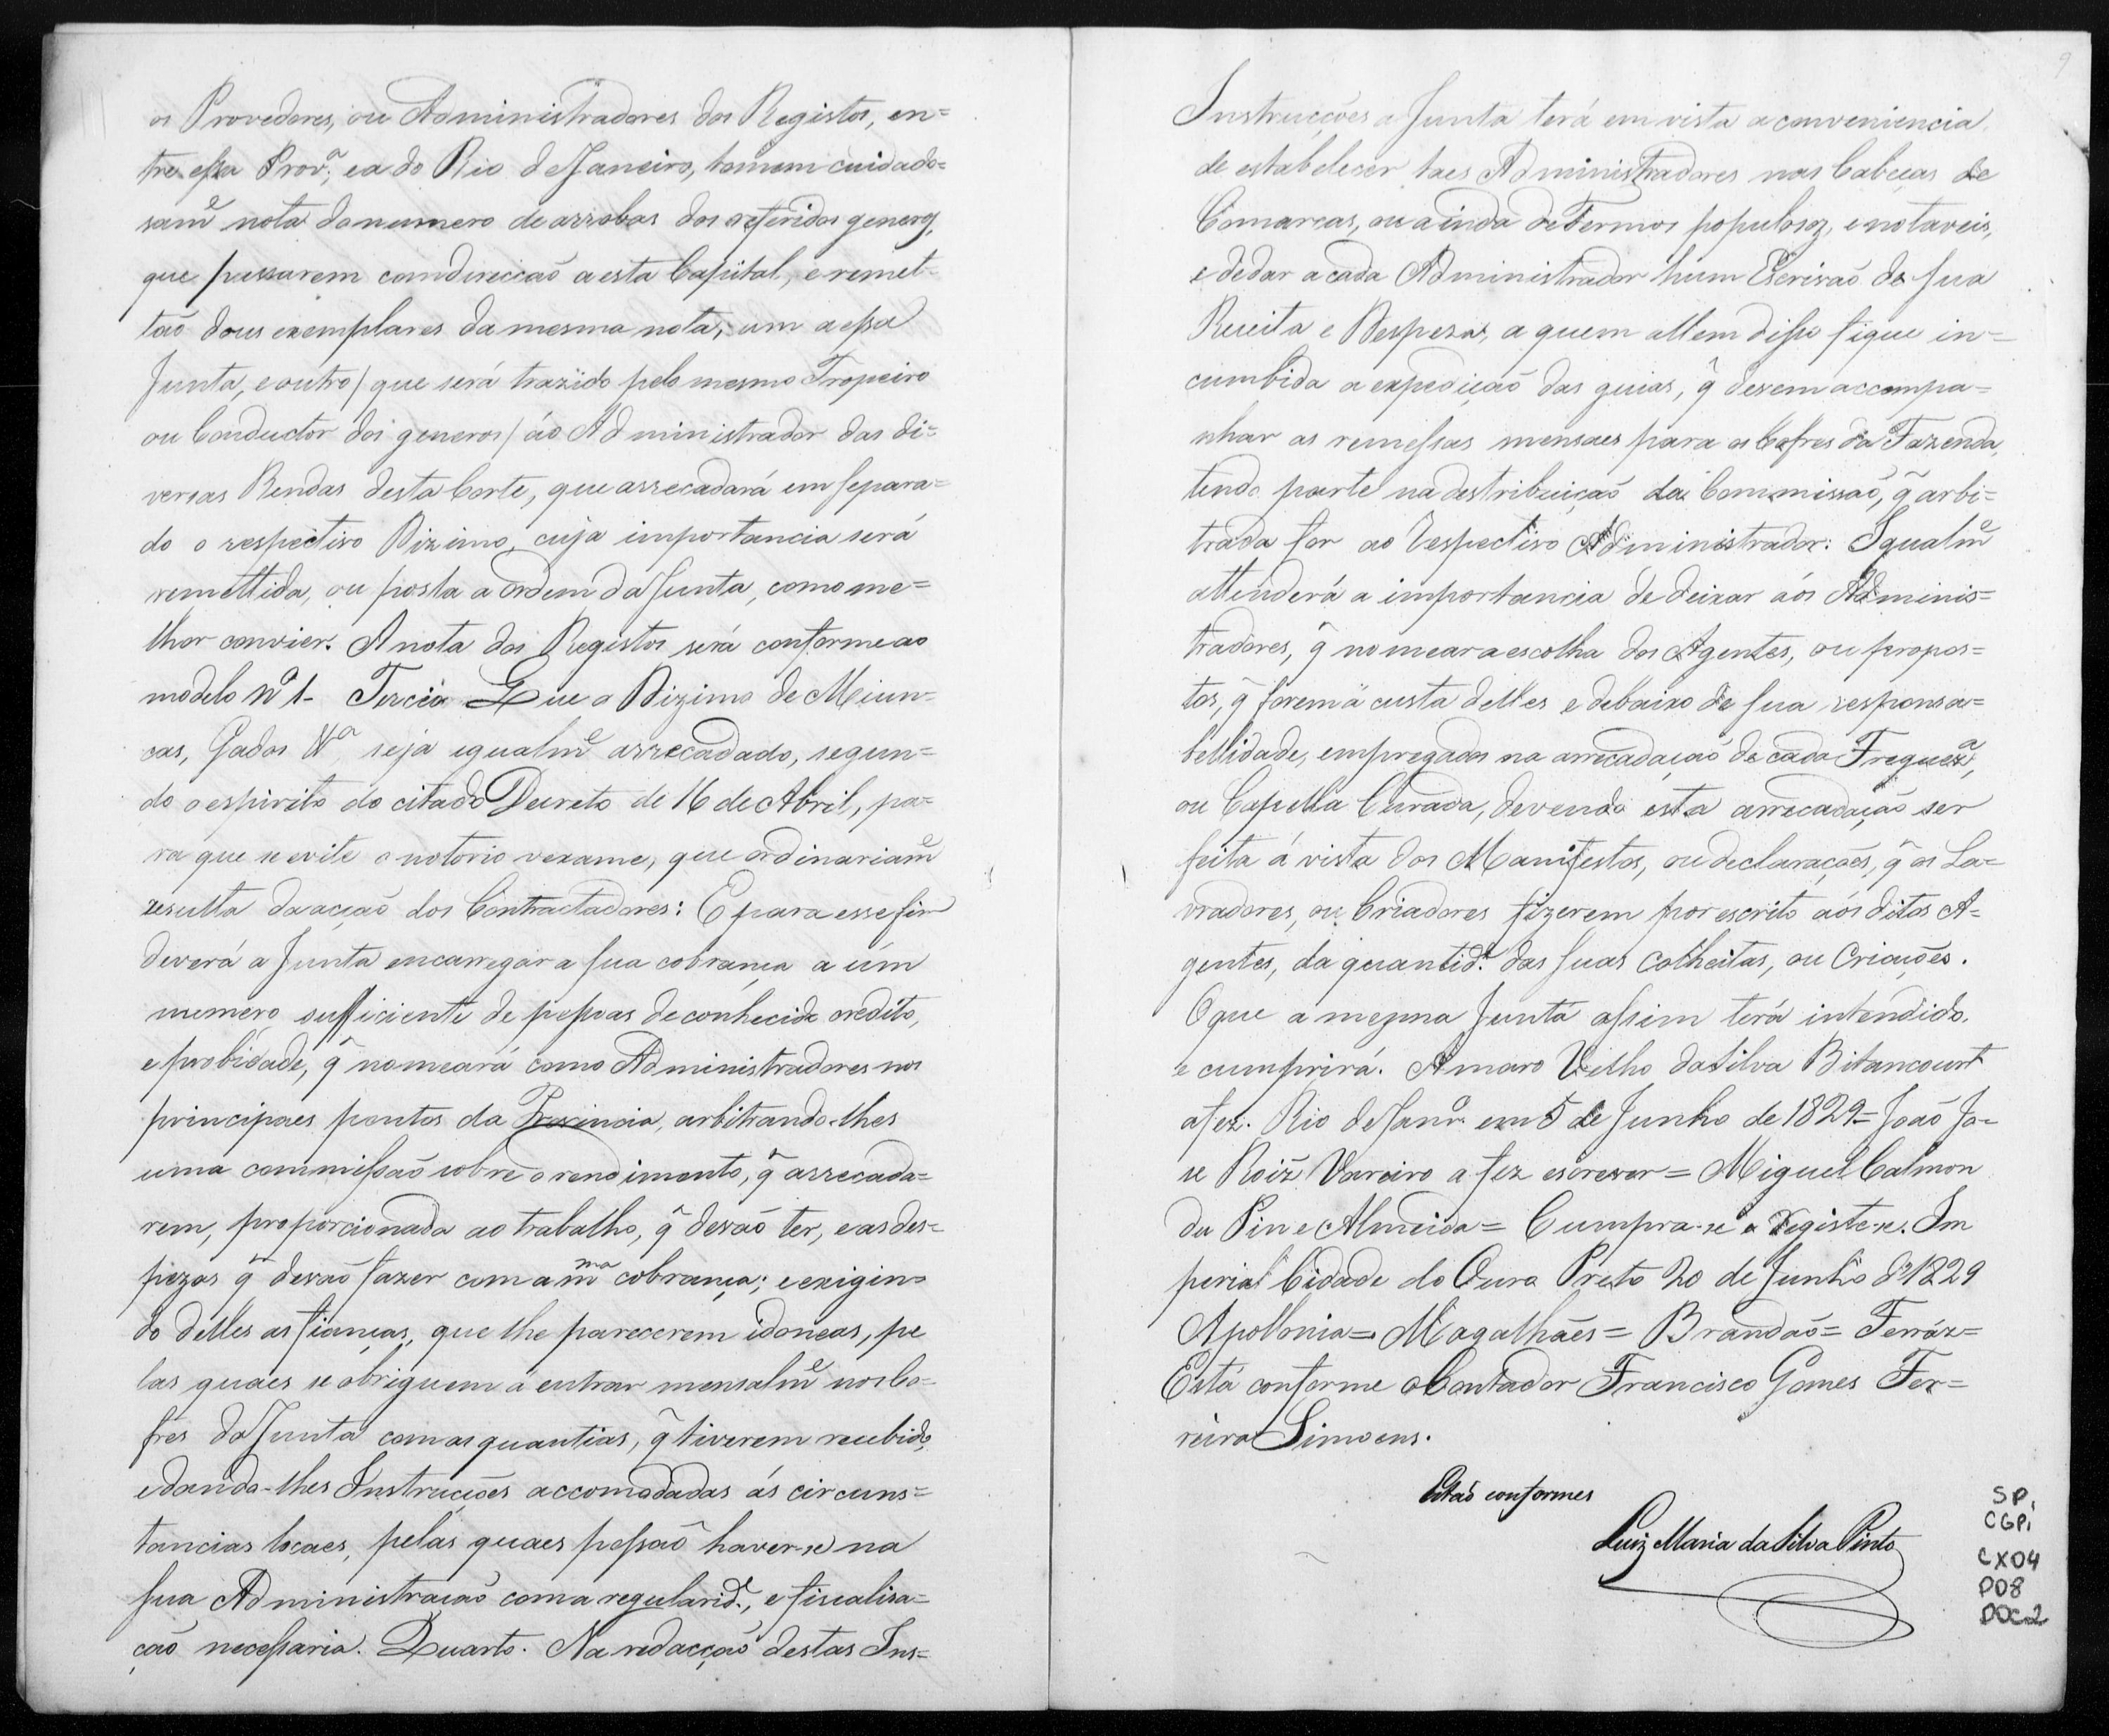 os Provedores, ou Administradores dos Registos, en=
tre essa Prov.ª, ea do Rio de Janeiro, tomem cuidado=
sam.e nota do numero de arrobas dos referidos generos,
que passarem com direcçaõ a esta Capital, e remet-
taõ dous exemplares da mesma nota, um a essa
Junta, e outro/ que será trazido pelo mesmo Tropeiro
ou Conductor dos generos/ áo Administrador das di=
versas Rendas desta Corte, que arrecadará em separa=
do o respectivo Dizimo, cuja importancia será
remettida, ou posta a ordem da Junta, como me=
lhor convier. A nota dos Registos será conforme ao
modelo Nº 1- Terceiro Que o Dizimo de Miun-
cas, Gados &.ª seja egualm.e arrecadado, segun=
do o espirito do citado Decreto de 16 de Abril, pa=
ra que se evite o notorio vexame, que ordinariam.e
resulta da acçaõ dos Contractadores: E para esse fim
deverá a Junta encarregar a sua cobrança a úm
numero sufficiente de pessoas de conhecido credito,
e probidade, q̃ nomeará como Administradores nos
principaes pontos da Provincia, arbitrando-lhes
uma commissaõ sobre o rendimento, q̃ arrecada=
rem, proporcionada ao trabalho, q̃ devaõ ter, e as des=
pezas q̃ devaõ fazer com a m.ma cobrança; e exigin=
do delles as fianças, que lhe parecerem idoneas, pe
las quaes se obriguem a entrar mensalm.e nos Co=
fres da Junta com as quantias, q̃ tiverem recebido,
e dando-lhes Instrucções accomodadas ás circuns=
tancias locaes, pelas quaes possaõ haver-se na
sua Administraçaõ com a regularid.e, e fiscalisa=
çaõ necessaria. Quarto. Na redacçaõ destas Ins=
9
Instrucções a Junta terá em vista a conveniencia
de estabelecer taes Administradores nas Cabeças de
Comarcas, ou ainda de Termos populosos, e notaveis,
e de dar a cada Administrador hum Escrivaõ de sua
Receita e Despeza, a quem allem disso fique in=
cumbida a expediçaõ das guias, q̃ devem accompa=
nhar as remessas mensaes para os Cofres da Fazenda,
tendo parte na destribuiçaõ da Commissaõ, q̃ arbi=
trada for ao respectivo Administrador: Igualm.e
attenderá a importancia de deixar aós Adminis=
tradores, q̃ nomear a escolha dos Agentes, ou propos=
tos, q̃ forem á custa delles e debaixo de sua responsa=
bellidade, empregados na arrecadaçaõ de cada Freguez.ª,
ou Capella Curada, devendo esta arrecadaçaõ ser
feita á vista dos Manifestos, ou declarações, q̃ os La=
vradores, ou Criadores fizerem por escrito aós ditos A=
gentes, da quantid.e das suas Colheitas, ou Criações.
O que a mesma Junta assim terá intendido,
e cumprirá. Amaro Velho da Silva Bitancourt
a fez. Rio de Janr.o em 5 de Junho de 1829= Joaõ Jo=
se Roiz̃ Vareiro a fez escrever= Miguel Calmon
du Pin e Almeida= Cumpra-se e registe-se. Im
perial Cidade do Ouro Preto 20 de Junho d'1829
Apollonia= Magalhães= Brandaõ= Ferráz=
Está conforme o Contador Francisco Gomes Fer=
reira Simoens.
Estaõ conformes
Luiz Maria da Silva Pinto
SP,
CGP,
CX04
D08
DOC.2